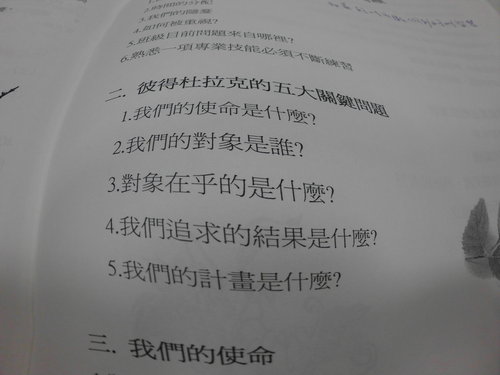 2.時間的分配
3.我們的隨變
4.如何被重視?
5.班級目前問題來自哪裡?
6.熟悉一項專業技能必須不斷練習
二. 彼得杜拉克的五大關鍵問題
1.我們的使命是什麼?
2.我們的對象是誰?
3.對象在乎的是什麼?
4.我們追求的結果是什麼?
5.我們的計畫是什麼?
三. 我們的使命